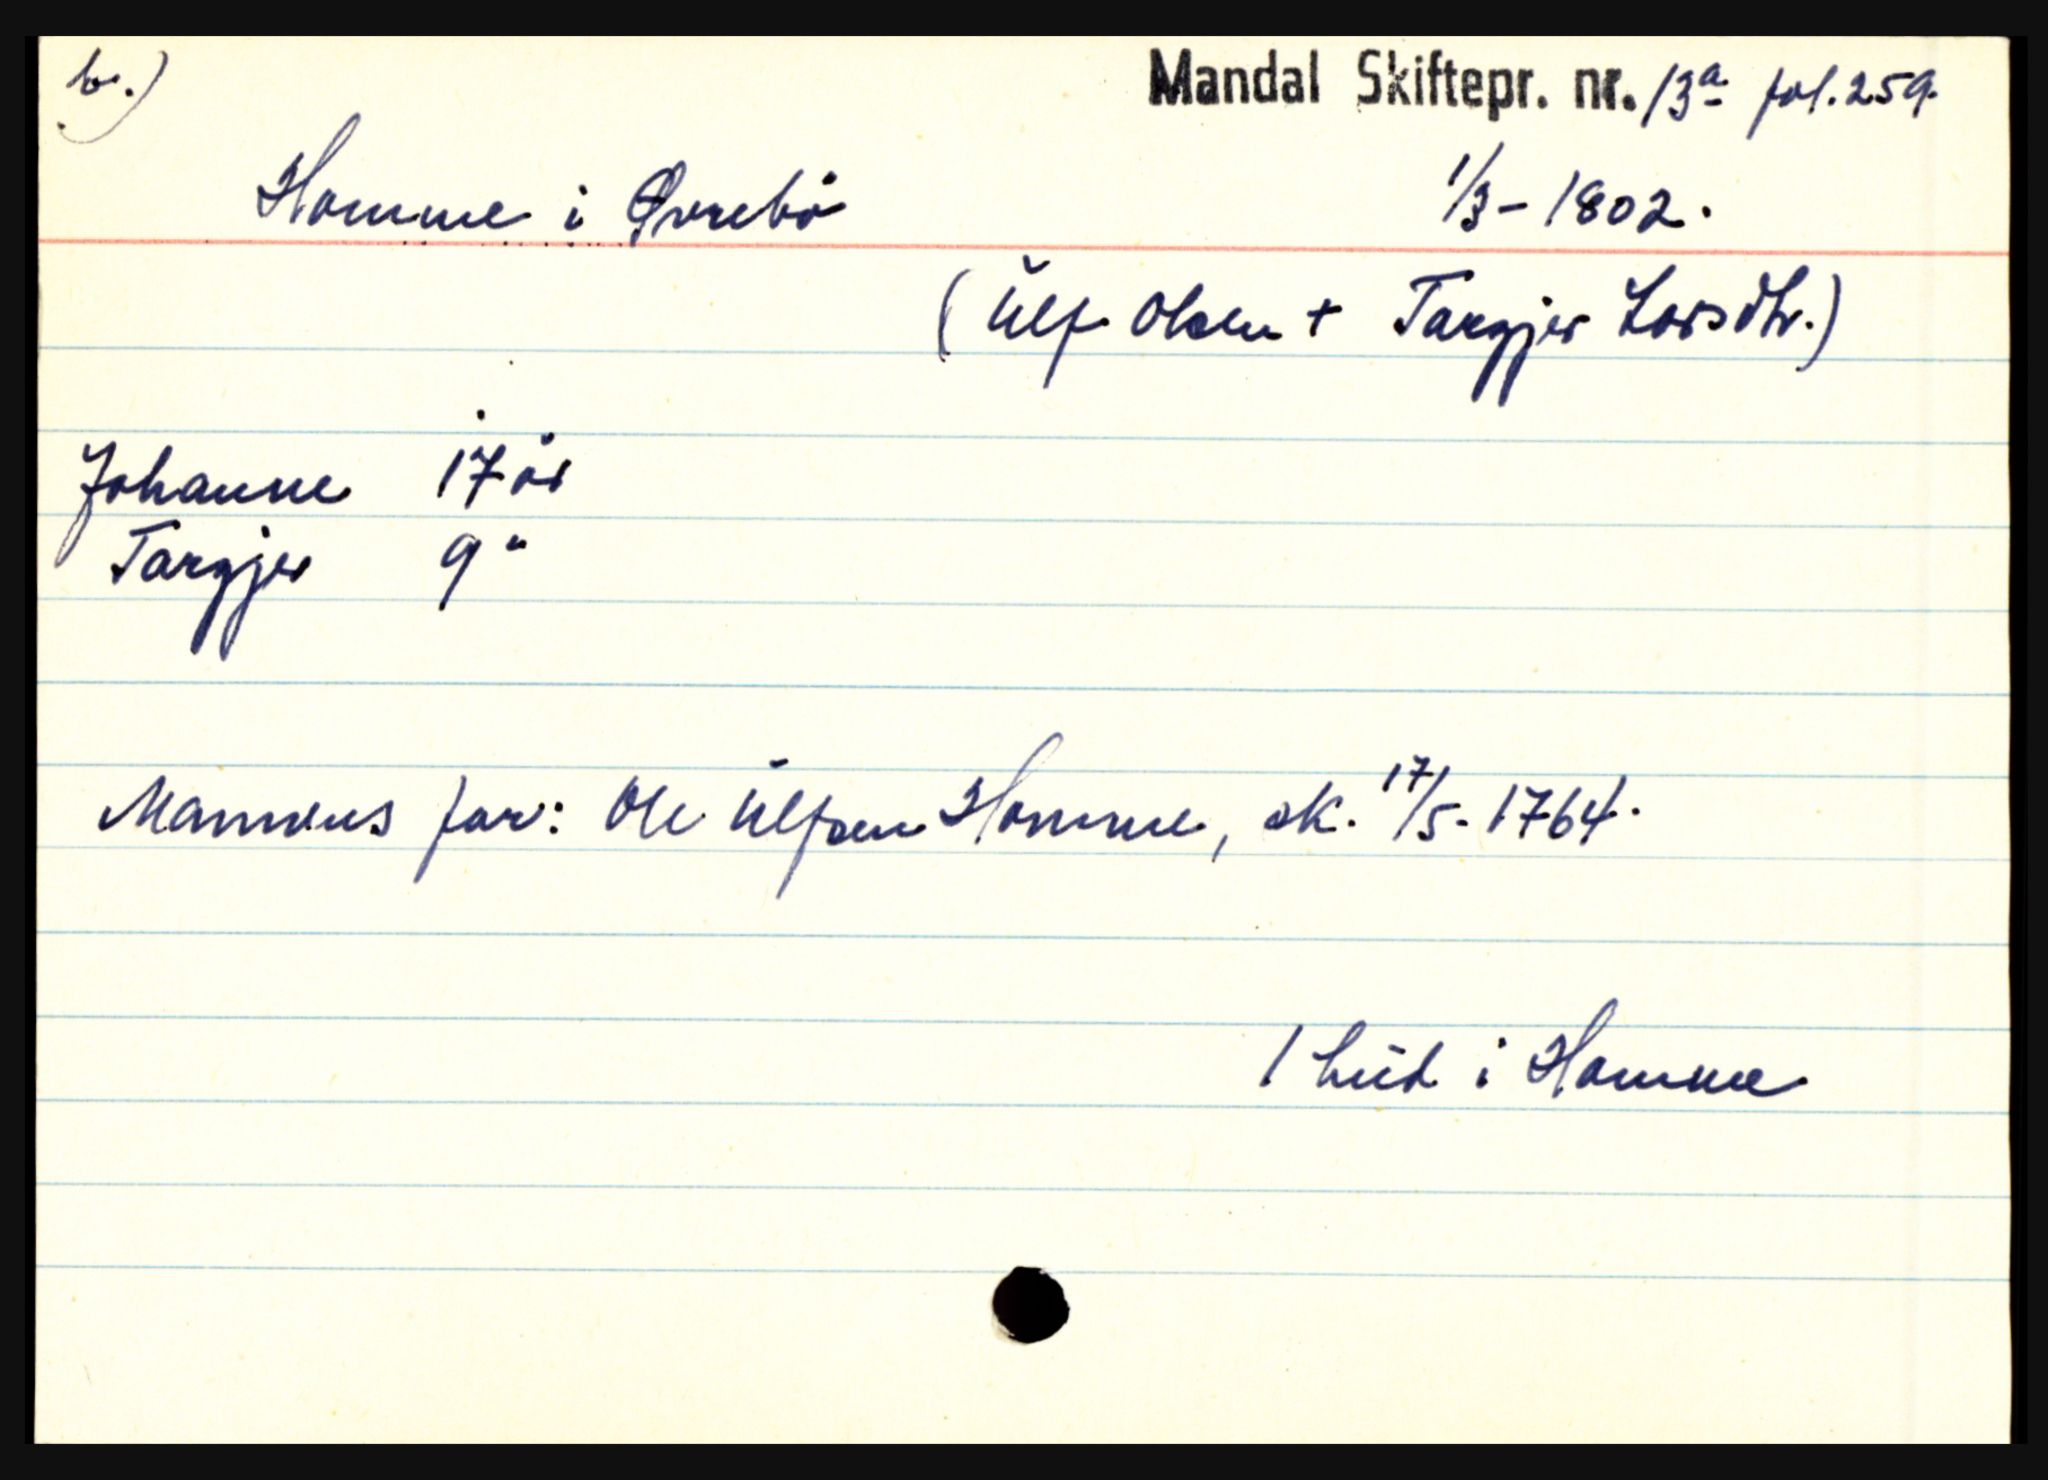 b.)
Mandal Skiftepr. nr. 13a fol. 259.
Homme i Øvrebö 1/3-1802.
(Ulf Olsen + Targjer Larsdtr.)
Johanne 17 år
Targjer 9 "
Mannens far: Ole Ulfsen Homme, sk. 17/5-1764.
1 hud i Homme